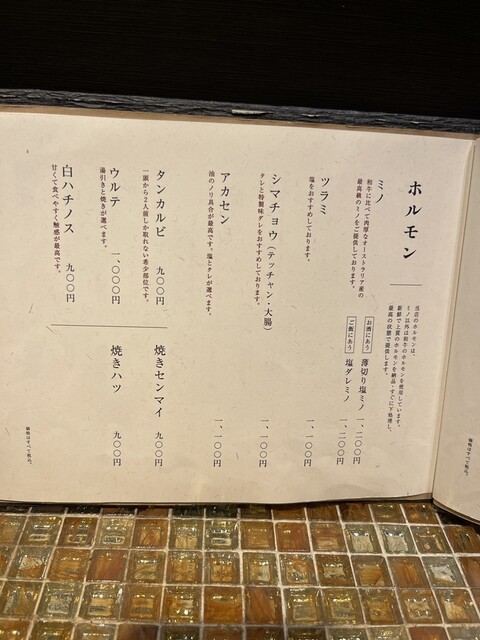 ホルモン
当店のホルモンは、
ミノ以外は和牛のホルモンを使用しています。
新鮮で上質のホルモンを納品・すぐに下処理し、
最高の状態で提供します。
ミノ
和牛に比べて肉厚なオーストラリア産の
最高級のミノをご提供しております。
お酒にあう 薄切り塩ミノ 一、二〇〇円
ご飯にあう 塩ダレミノ 一、二〇〇円
ツラミ 一、一〇〇円
塩をおすすめしております。
シマチョウ(テッチャン・大腸) 一、一〇〇円
タレと特製味ダレをおすすめしております。
アカセン 一、一〇〇円
油のノリ具合が最高です。塩とタレが選べます。
タンカルビ 九〇〇円
一頭から2人前しか取れない希少部位です。
ウルテ 一、〇〇〇円
湯引きと焼きが選べます。
白ハチノス 九〇〇円
甘くて食べやすく触感が最高です。
焼きセンマイ 九〇〇円
焼きハツ 九〇〇円
価格はすべて税込。
価格はすべて税込。